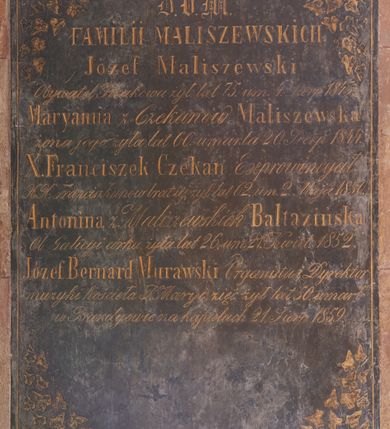 D.O.M.
FAMILII MALISZEWSKICH
Józef Maliszewski
Obywatel Krakowa żył lat 75. um. 4
Maryanna z Czekanów Maliszewska
żona jego żyła lat 60. umarła 20.
X. Franciszek Czekan Exprowincyał
brat żył lat 62. um. 2. Maja 1851.
Antonina z Maliszewskich Baltazińska
Ob. Galicyi córka żyła lat 26. um. 1852.
Józef Bernard Murawski Organista i Dyrektor
muzyki kościoła P. Maryi, zięć żył lat 50. umarł
w na kąpielach 21. 1859.